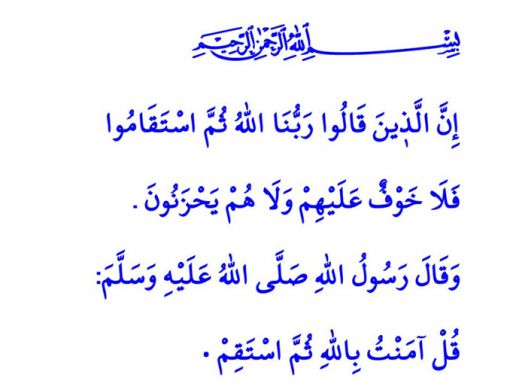 بِسْمِ اللهِ الرَّحْمٰنِ الرَّحِيمِ
إِنَّ الَّذِينَ قَالُوا رَبُّنَا اللهُ ثُمَّ اسْتَقَامُوا
فَلَا خَوْفٌ عَلَيْهِمْ وَلَا هُمْ يَحْزَنُونَ .
وَقَالَ رَسُولُ اللهِ صَلَّى اللهُ عَلَيْهِ وَسَلَّمَ:
قُلْ آمَنْتُ بِاللهِ ثُمَّ اسْتَقِمْ .